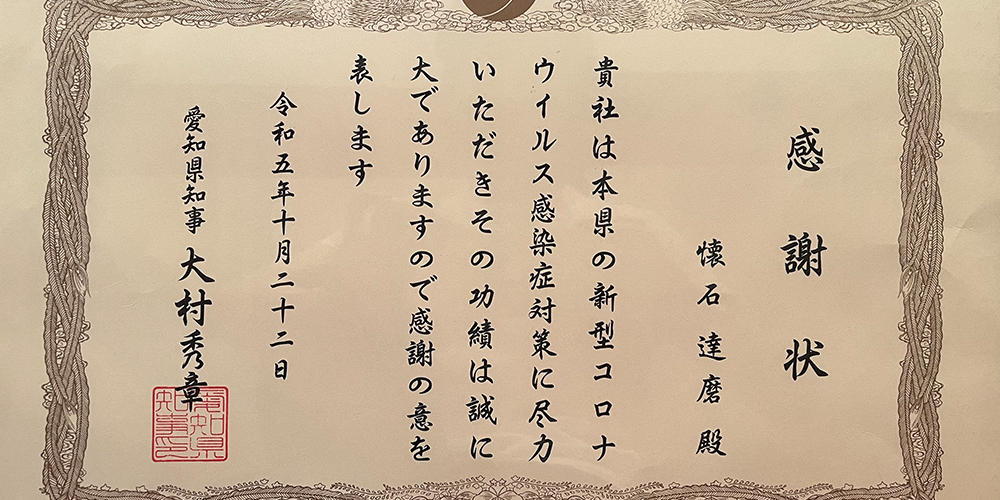 感謝状
懐石 達磨 殿
貴社は本県の新型コロナ
ウイルス感染症対策に尽力
いただきその功績は誠に
大でありますので感謝の意を
表します
令和五年十月二十二日
愛知県知事 大村秀章
愛知県
知事印